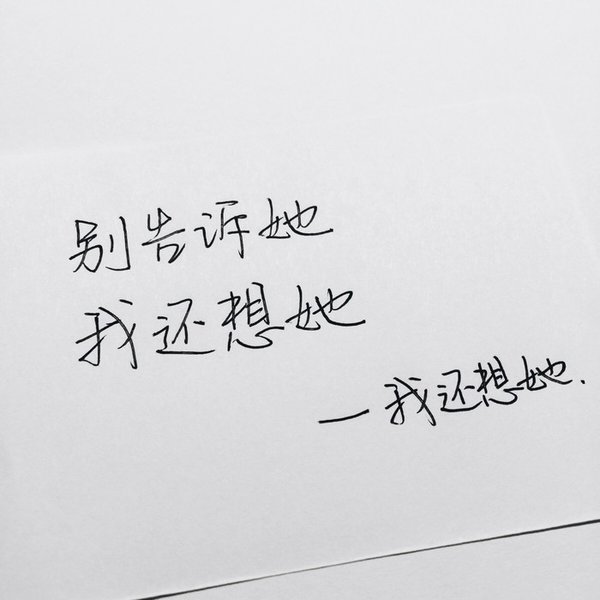 别告诉她
我还想她
—我还想她.